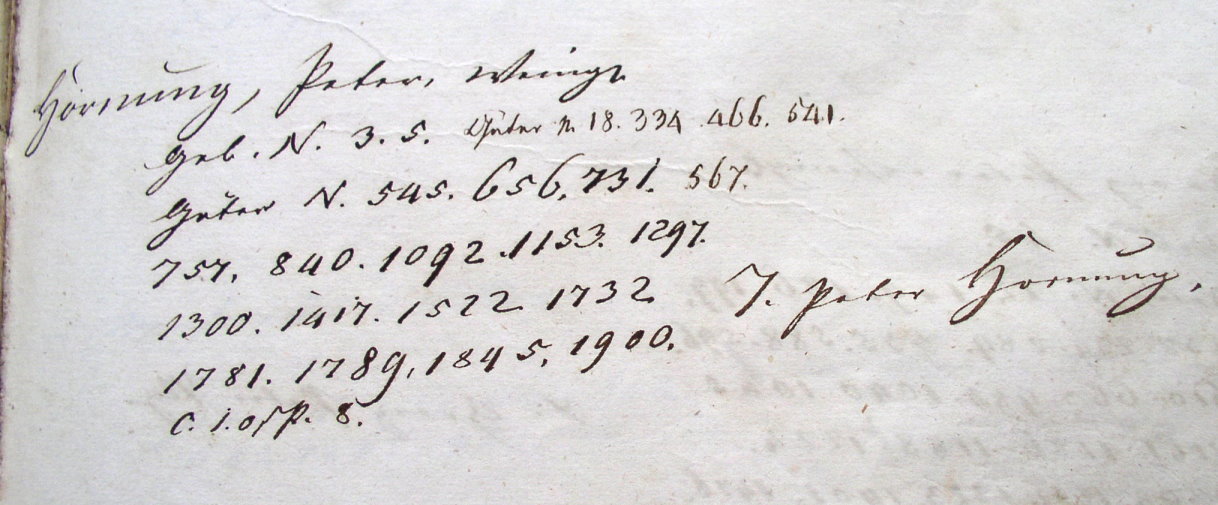 Hornung, Peter, Weingr
Geb. N. 3. 5. Güter N. 18. 334 . 466. 541.
Güter N. 545. 656. 731. 567.
757. 840. 1092. 1153. 1297.
1300. 1417. 1522. 1732.
1781. 1789, 1845, 1900.
C. 8.
J. Peter Hornung.